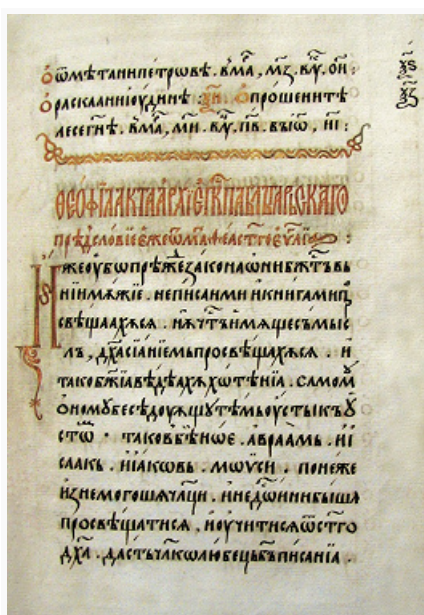 ѡ ѿмѣтанипетровѣ. в̾ма҃, м҃з. вл҃у. он҃:
ѡ раскааннїоудинѣ: н҃и. ѡ прошенитѣ
лесегн҃ѣ. в̾ма҃, м҃и. вл҃у. п҃в. выѡ҃, н҃і:
ѲЕОФИЛАКТААРХЇЕП҃КПАБЛ҃ЪГАРЬСКАГО
прѣдсловїеежеѿма҃ѳ҃астгоеу҃лїа:
Ижеоубѡпрѣжезаконаѡнибж҃тъвь
нїимѫжїе. неписанми икнигамипр҃
свѣщаахѫсѧ. нѫчт҃ъимѧщесъмыс
лъ, дх҃асїанїемьпросвѣщахѫсѧ. и
такобж҃їавѣдѣахѫхѡтѣнїа. самомꙋ҃
ѡномубесѣдоуѫщутѣмьоустыкъꙋ
стѡ҃. таковбѣнѡе. авраамь. ис҃
саакь. иїакѡвь. мѡѵси. понеже
изнемогошѧчл҃ци. инедѡ҃инибышѧ
просвѣщатисѧ, иоучитисѧѿст҃го
дх҃а. дастьчл҃кѡлюбецьб҃ъписанїа.